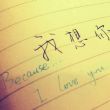 我想你
Because...
I love you